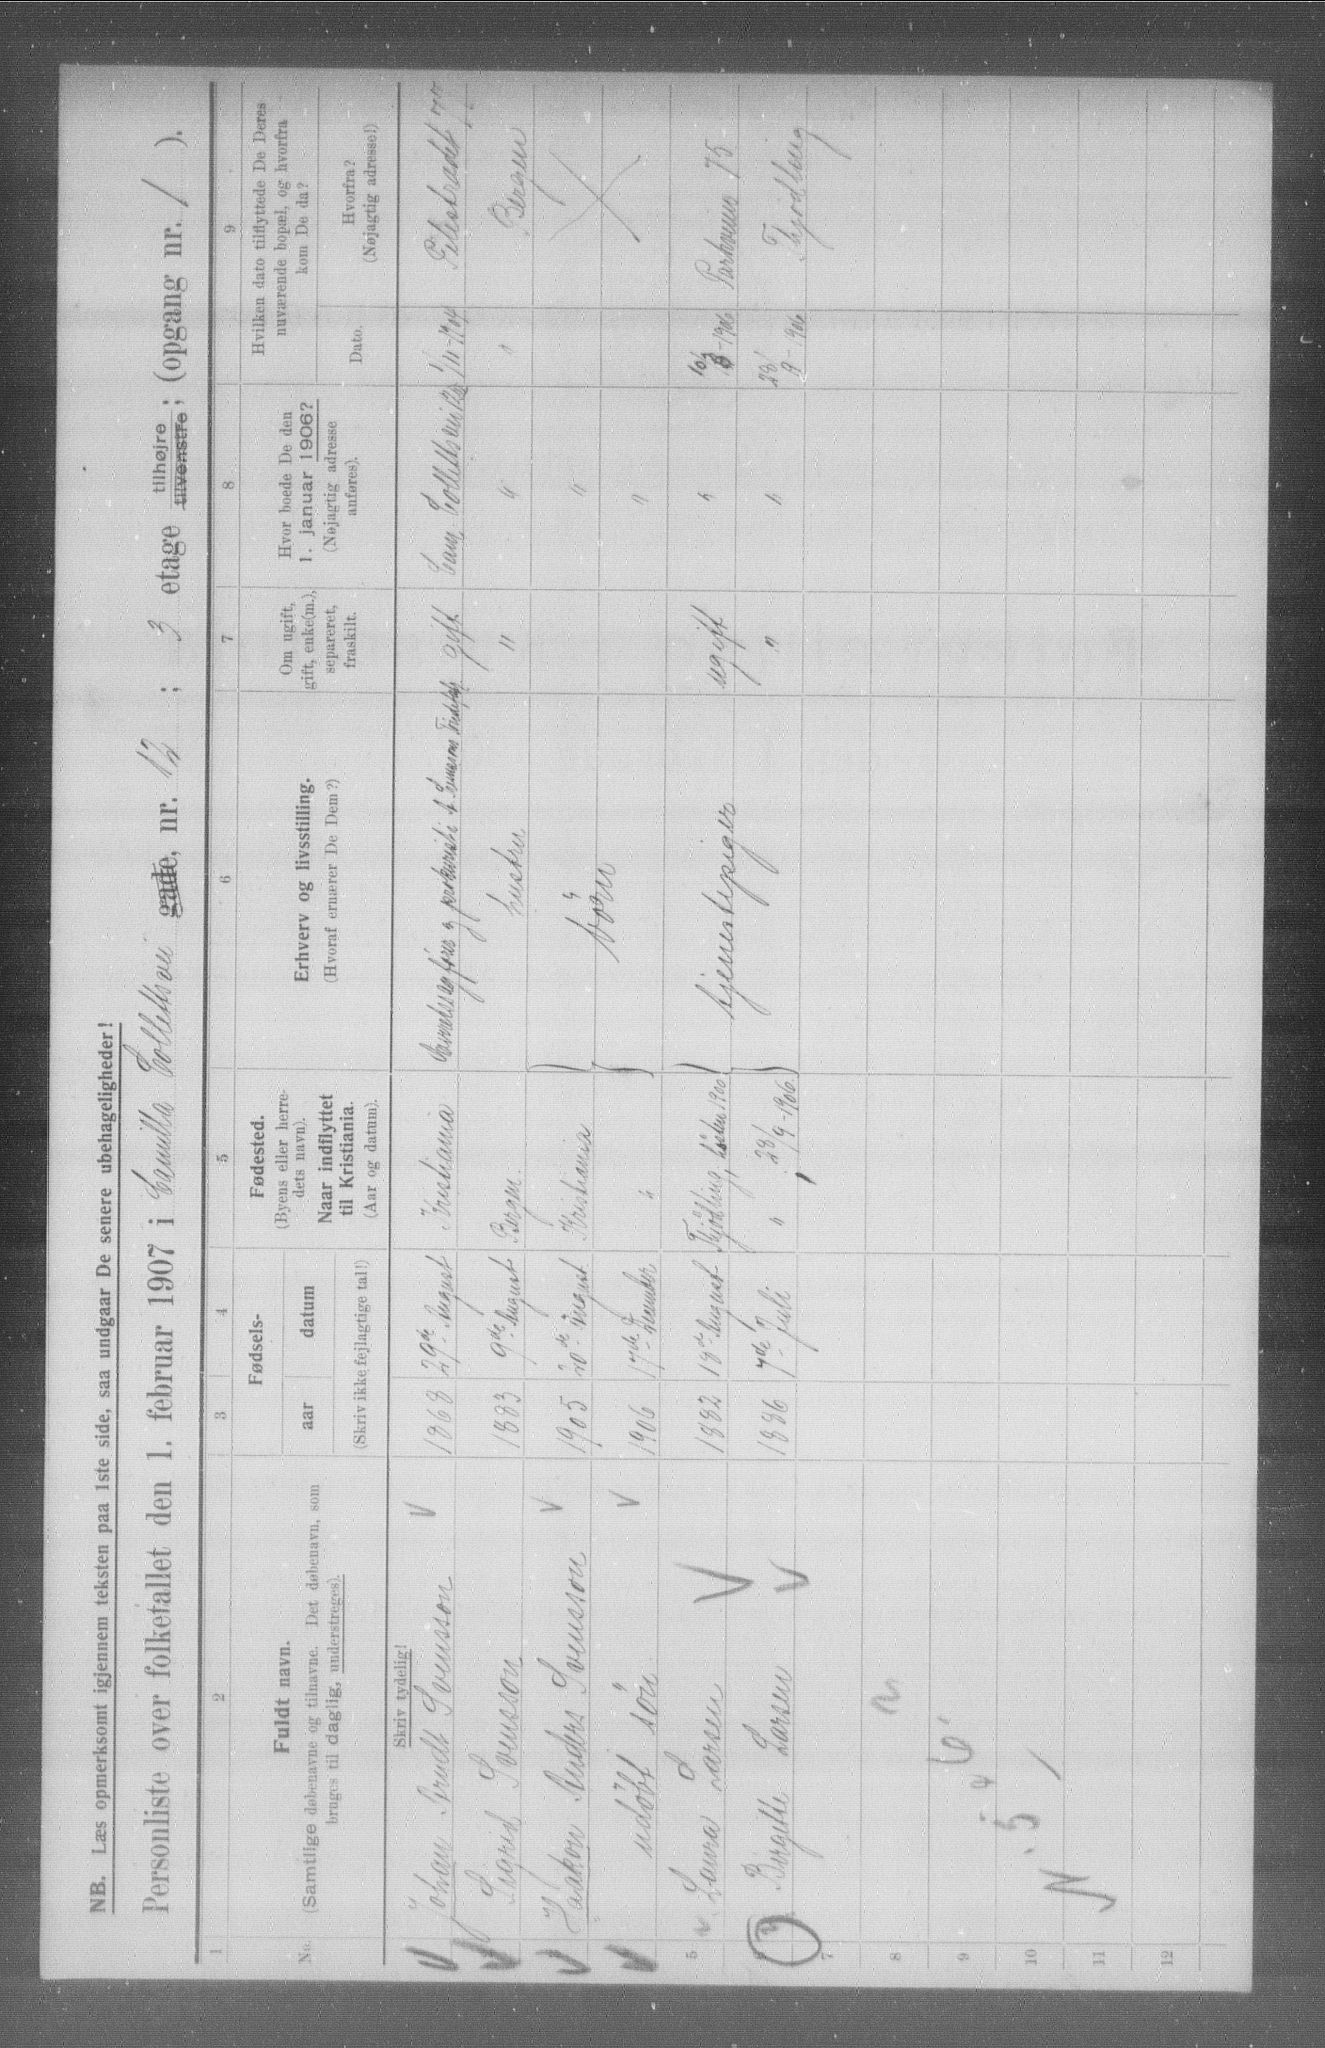 NB. Læs opmerksomt igjennem teksten paa 1ste side, saa undgaar De senere ubehageligheder!
Personliste over folketallet den 1. februar 1907 i Camilla Collettsvei gade, nr. 12 ; 3 etage tilhøjre tilvenstre ; (opgang nr. 1 ).
1 2 3 4 5 6 7 8 9
No.
Fuldt navn.
(Samtlige døbenavne og tilnavne. Det døbenavn, som
bruges til daglig, understreges).
Skriv tydelig!
Fødsels-
aar
datum
(Skriv ikke fejlagtige tal!)
Fødested.
(Byens eller herre-
dets navn).
Naar indflyttet
til Kristiania.
(Aar og datum).
Erhverv og livsstilling.
(Hvoraf ernærer De Dem?)
Om ugift,
gift, enke(m.),
separeret,
fraskilt.
Hvor boede De den
1. januar 1906?
(Nøjagtig adresse
anføres).
Hvilken dato tilflyttede De Deres
nuværende bopæl, og hvorfra
kom De da?
Dato.
Hvorfra?
(Nøjagtig adresse!)
Johan Arndt Svensson 1868 29de August Kristiania gift Cam. Collettsvei 12 1/11-1904 Pilestrædet
Sigrid Svensson 1883 9de August Bergen hustru " " " Bergen
Haakon Anders Svensson 1905 20de August Kristiania } Börn "
udöbt sön 1906 17de December " "
5 Laura Larsen 1882 18de August høsten 1900 } tjenestepiger ugift " 1906 Parkveien 75
Birgitte Larsen 1886 7de Juli " 28/9-1906 " " 28/9-1906
7
8
9
10
11
12